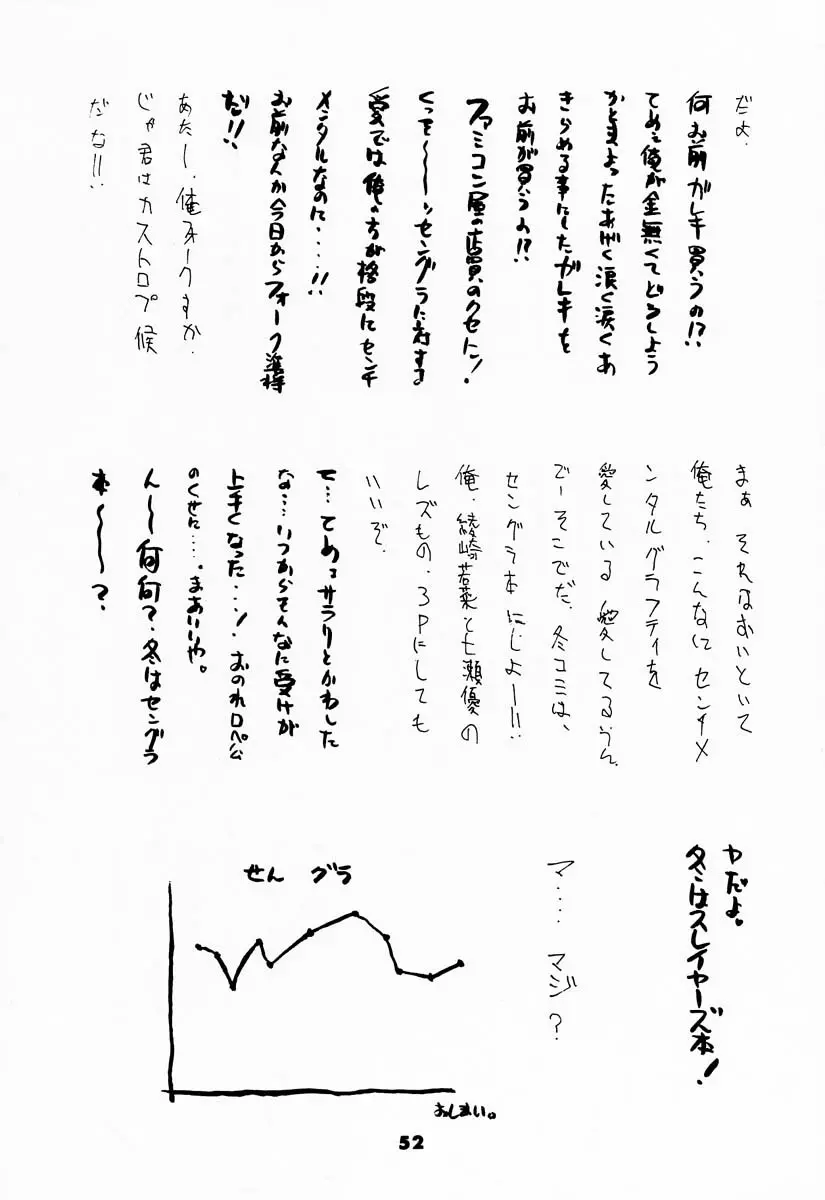 だよ.
何お前ガレキ買うの!?
てめぇ俺が金無くてどうしよう
かとまよったあげく泪く涙くあ
きらめる事にしたガレキを
お前が買うの!?
ファミコン屋の店員のクセに!
くっそ〜〜〜ッセングラに対する
愛では俺の方が格段にセンチ
メンタルなのに・・・・!!
お前なんか今日からフォーク准将
だ!!
あたー、俺フォークすか.
じゃ君はカストロプ候
だな!!
まぁ それはおいといて
俺たち、こんなにセンチメ
ンタルグラフティを
愛している 愛してるうん、
でーそこでだ、冬コミは、
セングラ本にしよー!!
俺、綾崎若菜と七瀬優の
レズもの、3Pにしても
いいぞ.
て…てめェサラリとかわした
な…いつからそんなに受けが
上手くなった・・・!おのれロペ公
のくせに….まあいいや。
ん〜何何?.冬はセングラ
本〜〜〜?.
ヤだよ。
冬はスレイヤーズ本!
マ…. マジ?
せん グラ
おしまい。
52